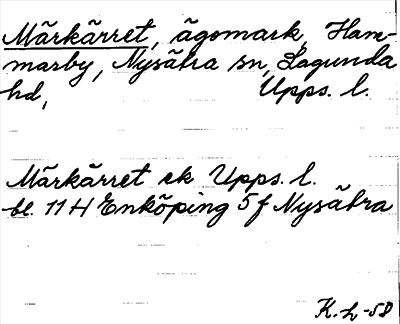 Märkärret, ägomark, Ham-
marby, Nysätra sn, Lagunda
hd, Upps. l.
Märkärret ek Upps. l.
bl. 11 H Enköping 5 f Nysätra
K.h -58